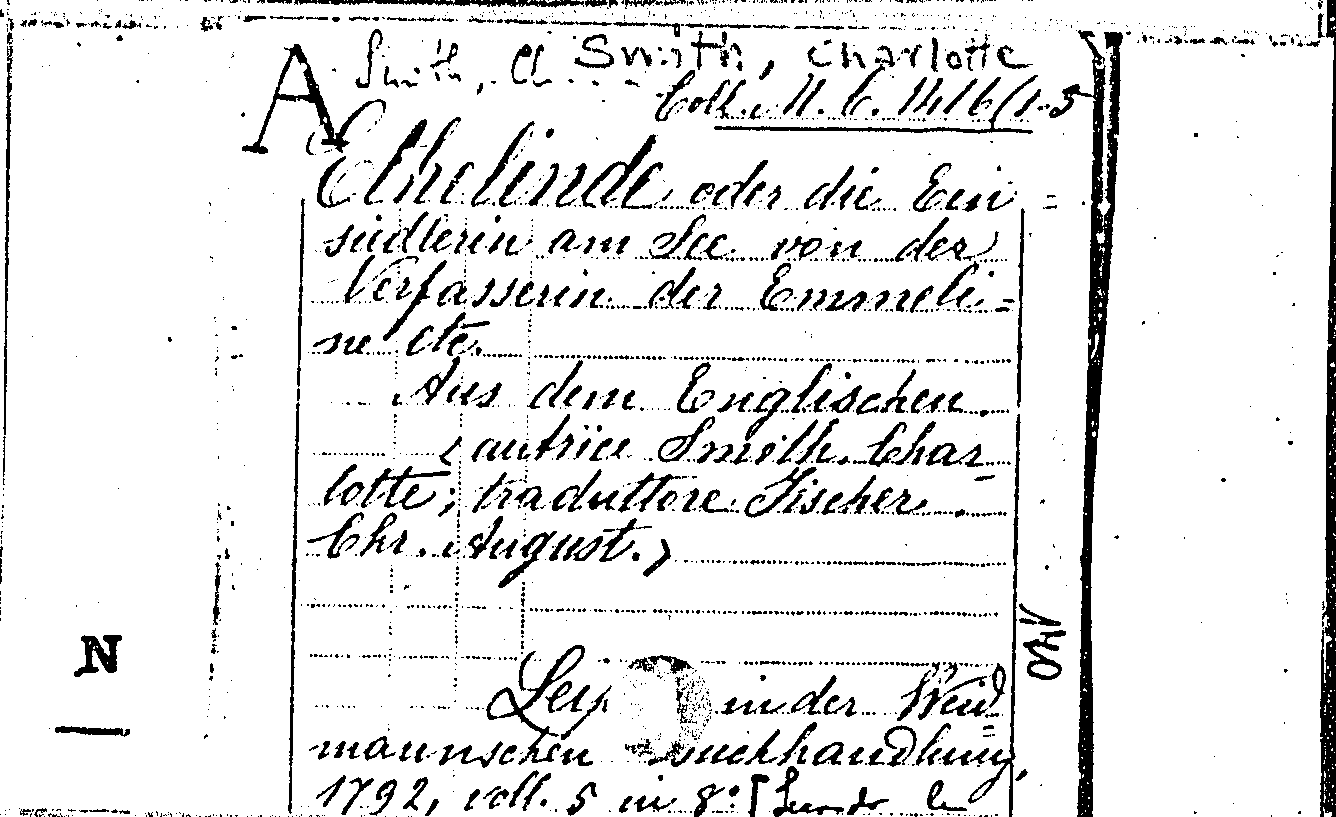 A Smith, Ch. Smith, Charlotte
Coll. M. C. 1416/1-5
Ethelinde oder die Ein=
siedlerin am See von der
Verfasserin der Emmeli=
ne etc.
Aus dem Englischen.
(autrice Smith Char-
lotte; traduttore Fischer
Chr. August.)
in der Weid=
mannschen Buchhandlung,
1792, voll. 5 in 8:
N